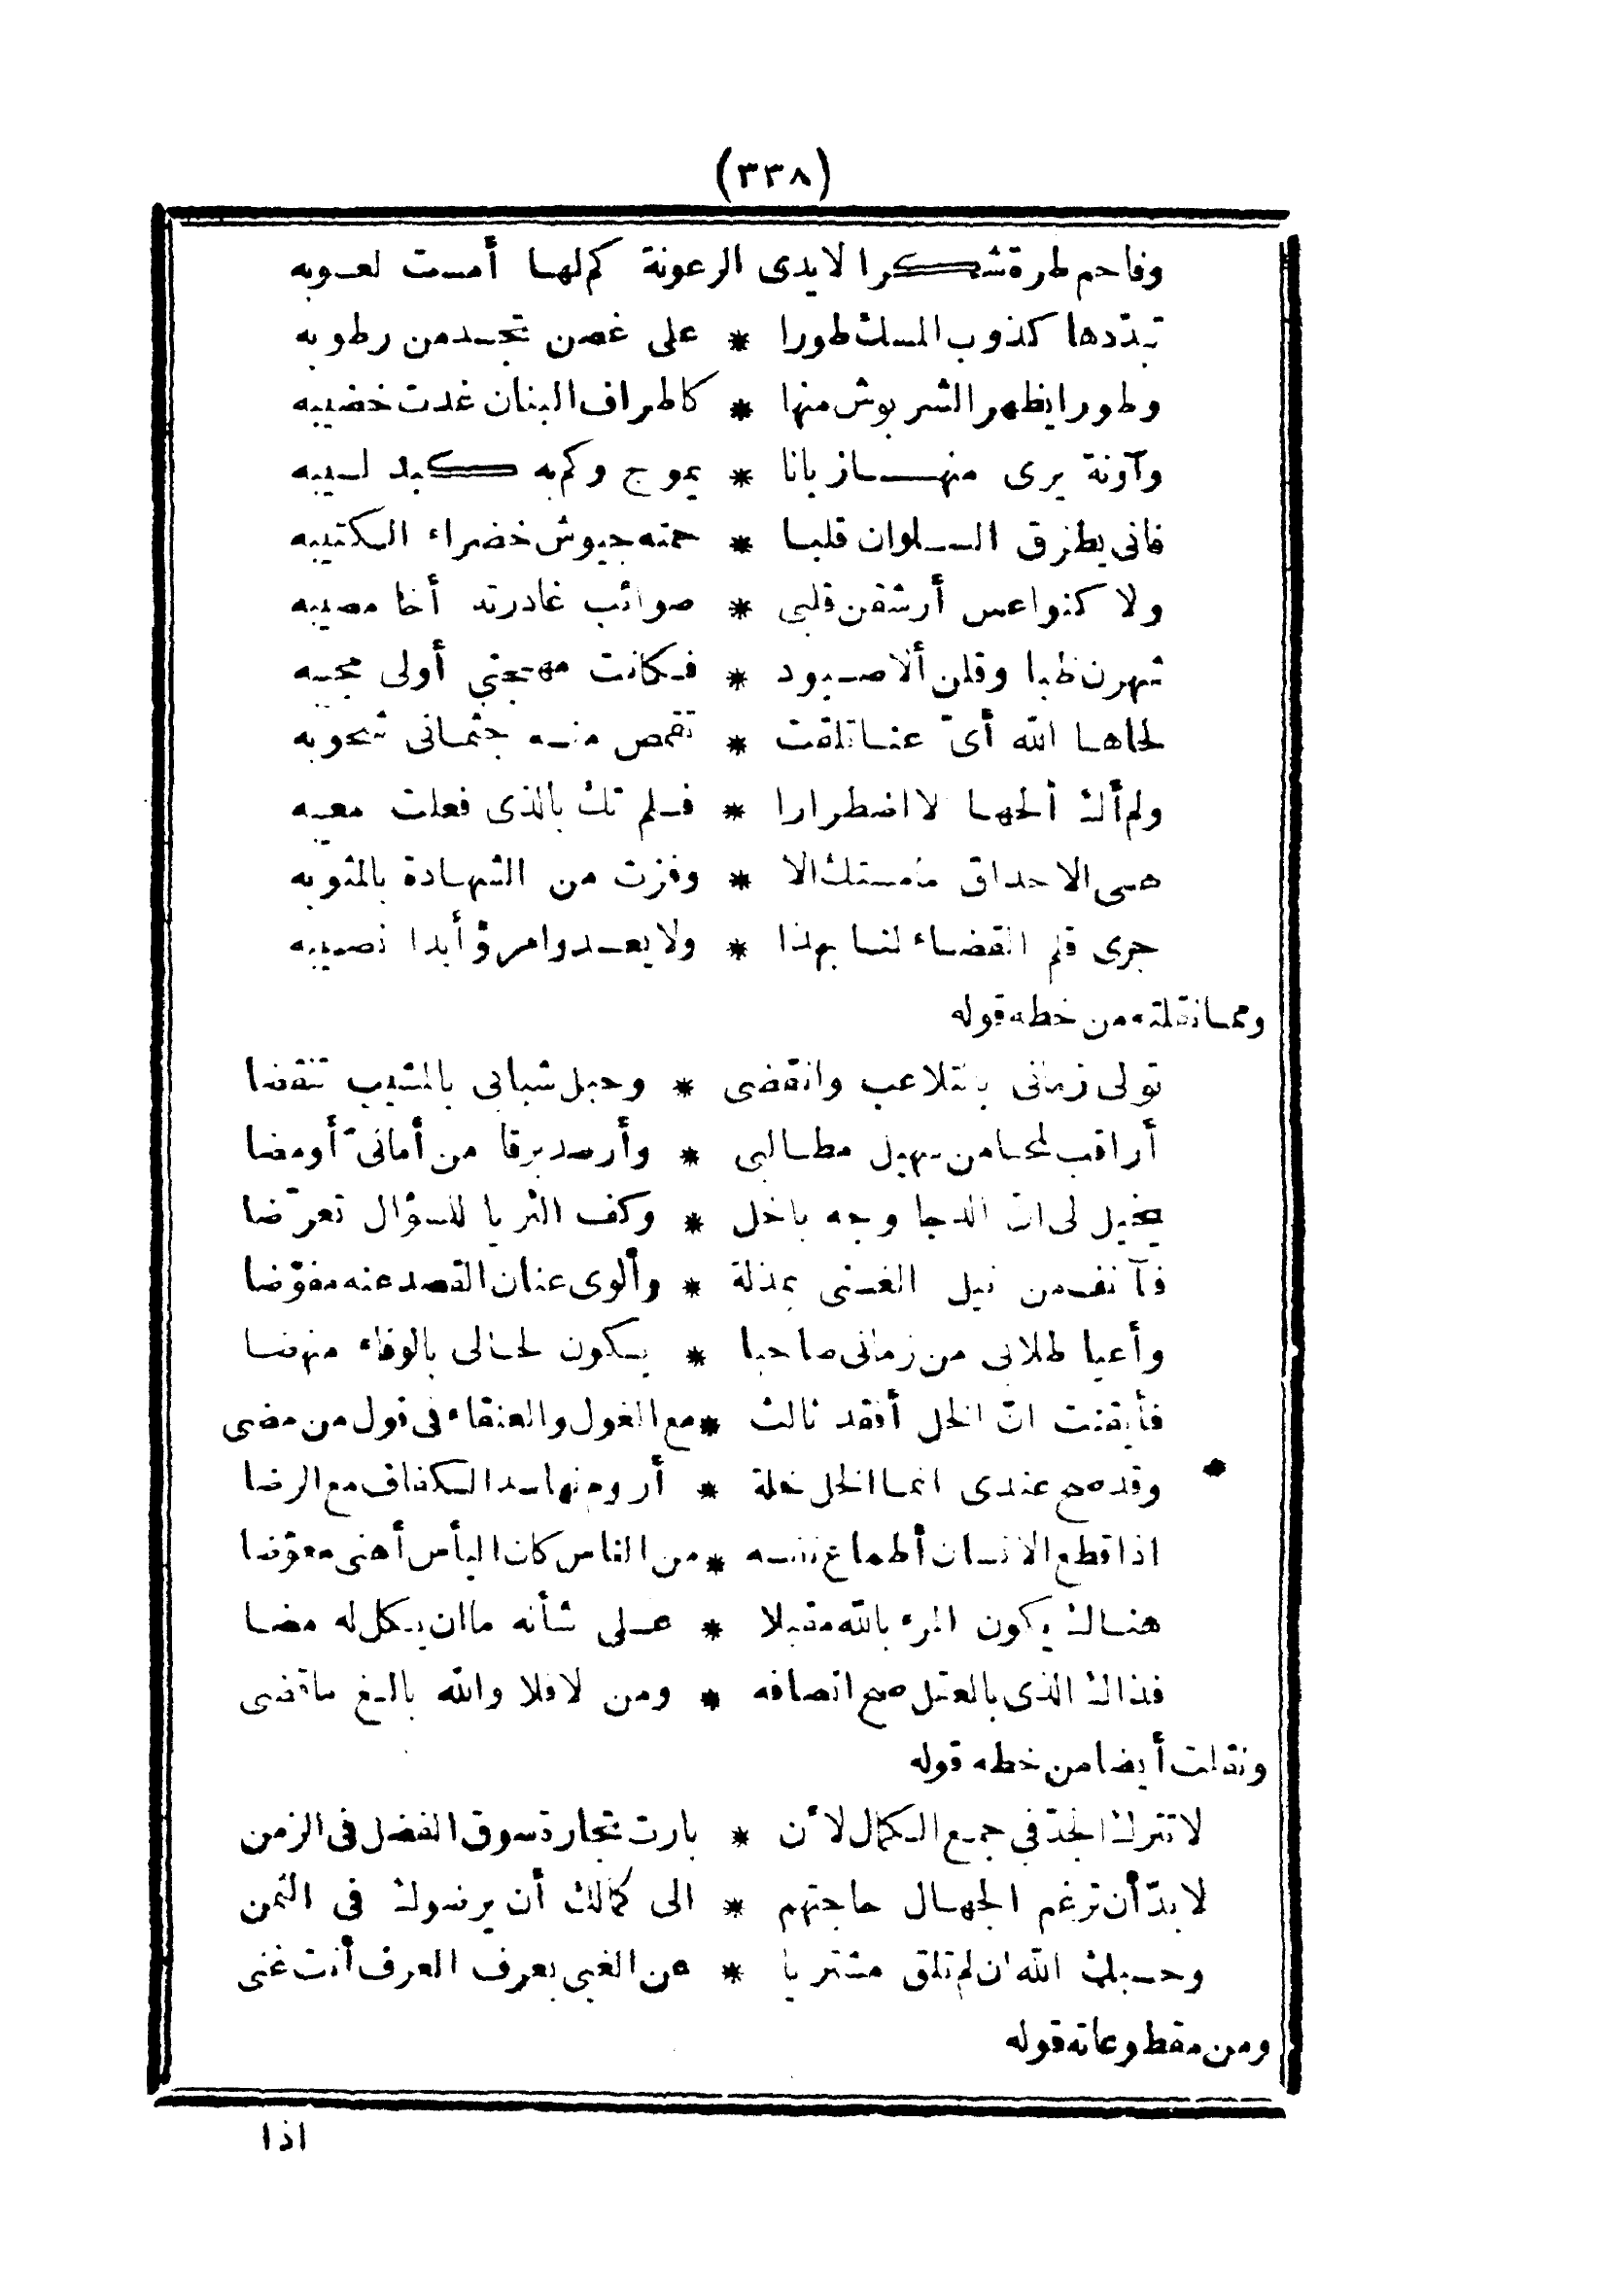 (٣٣٨)
وفاحم طرة شكرا لايدى الرعونة كم لها أمست لعوبه
تبدّدها كذوب المسك طورا * على غصن تجسد من رطوبه
وطورا يظهر الشربوش منها * كاطراف البنان غدت خضيبه
وآونة يرى منها زبانا * يموج وكم به كبد لسيبه
فانى يطرق السلوان قلبا * حمته جيوش خضراء الكتيبه
ولا كنواعس أرشقن قلبى * صوائب غادرته أخا مصيبه
شهرن ظبا وقلن ألا صبود * فكانت مهجتى أولى مجيبه
لحاها الله أىّ عنا تلقت * تقمص منه جثمانى شحوبه
ولم أك ألحها لا اضطرارا * فلم تك بالذى فعلت معيبه
هى الاحداق مامستك الا * وفزت من الشهادة بالمثوبه
جرى قلم القضاء لنا بهذا * ولا يعدو امرؤ أبدا نصيبه
ومما نقلته من خطه قوله
تولى زمانى بالتلاعب وانقضى * وحبل شبابى بالمشيب تنقضا
أراقب لمحا من سهيل مطالبى * وأرصد برقا من أمانىّ أومضا
يخيل لى انّ الدجا وجه باخل * وكف الثريا للسؤال تعرّضا
فآنف من نيل الغنى بمذلة * وألوى عنان القصد عنه مفوّضا
وأعيا طلابى من زمانى صاحبا * يكون لحالى بالوفاء منهضا
فأيقنت انّ الخل أفقد ثالث * مع الغول والعنقاء فى قول من مضى
وقد صح عندى انما الخل خلة * أروم بها سد الكفاف مع الرضا
اذا قطع الانسان أطماع نفسه * من الناس كان اليأس أهنى معوّضا
هناك يكون المرء بالله مقبلا * على شأنه ما ان يكل له مضا
فذاك الذى بالعقل صح اتصافه * ومن لا فلا والله بالغ ما قضى
ونقلت أيضا من خطه قوله
لا تترك الجدّ فى جمع الكمال لأن * بارت تجارة سوق الفضل فى الزمن
لا بدّ أن ترغم الجهال حاجتهم * الى كمالك أن يرضوك فى الثمن
وحسبك الله ان لم تلق مشتريا * عن الغبى بعرف العرف أنت غنى
ومن مقطوعاته قوله
اذا